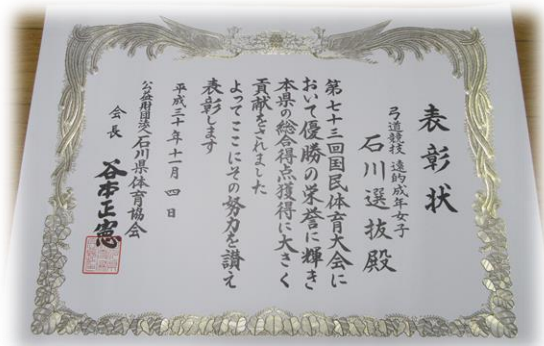 表彰状
弓道競技 遠的成年女子
石川選抜殿
第七十三回国民体育大会に
おいて優勝の栄誉に輝き
本県の総合得点獲得に大きく
貢献をされました
よってここにその努力を讃え
表彰します
平成三十年十一月四日
公益財団法人石川県体育協会
会長 谷本正憲